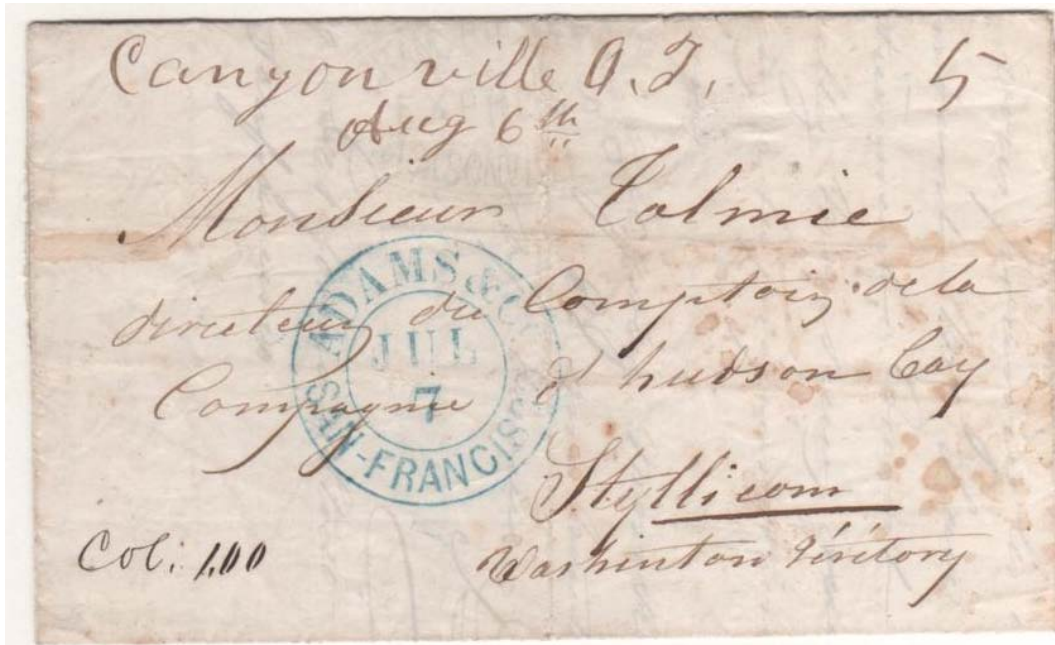 Canyonville O.T. 5
Aug 6th
Monsieur Tolmie
directeur du Comptoir de la
Compagnie d hudson bay
Styllicom
Washinton Téritory
Col: 1.00
ADAMS & CO
JUL
7
SAN-FRANCISCO